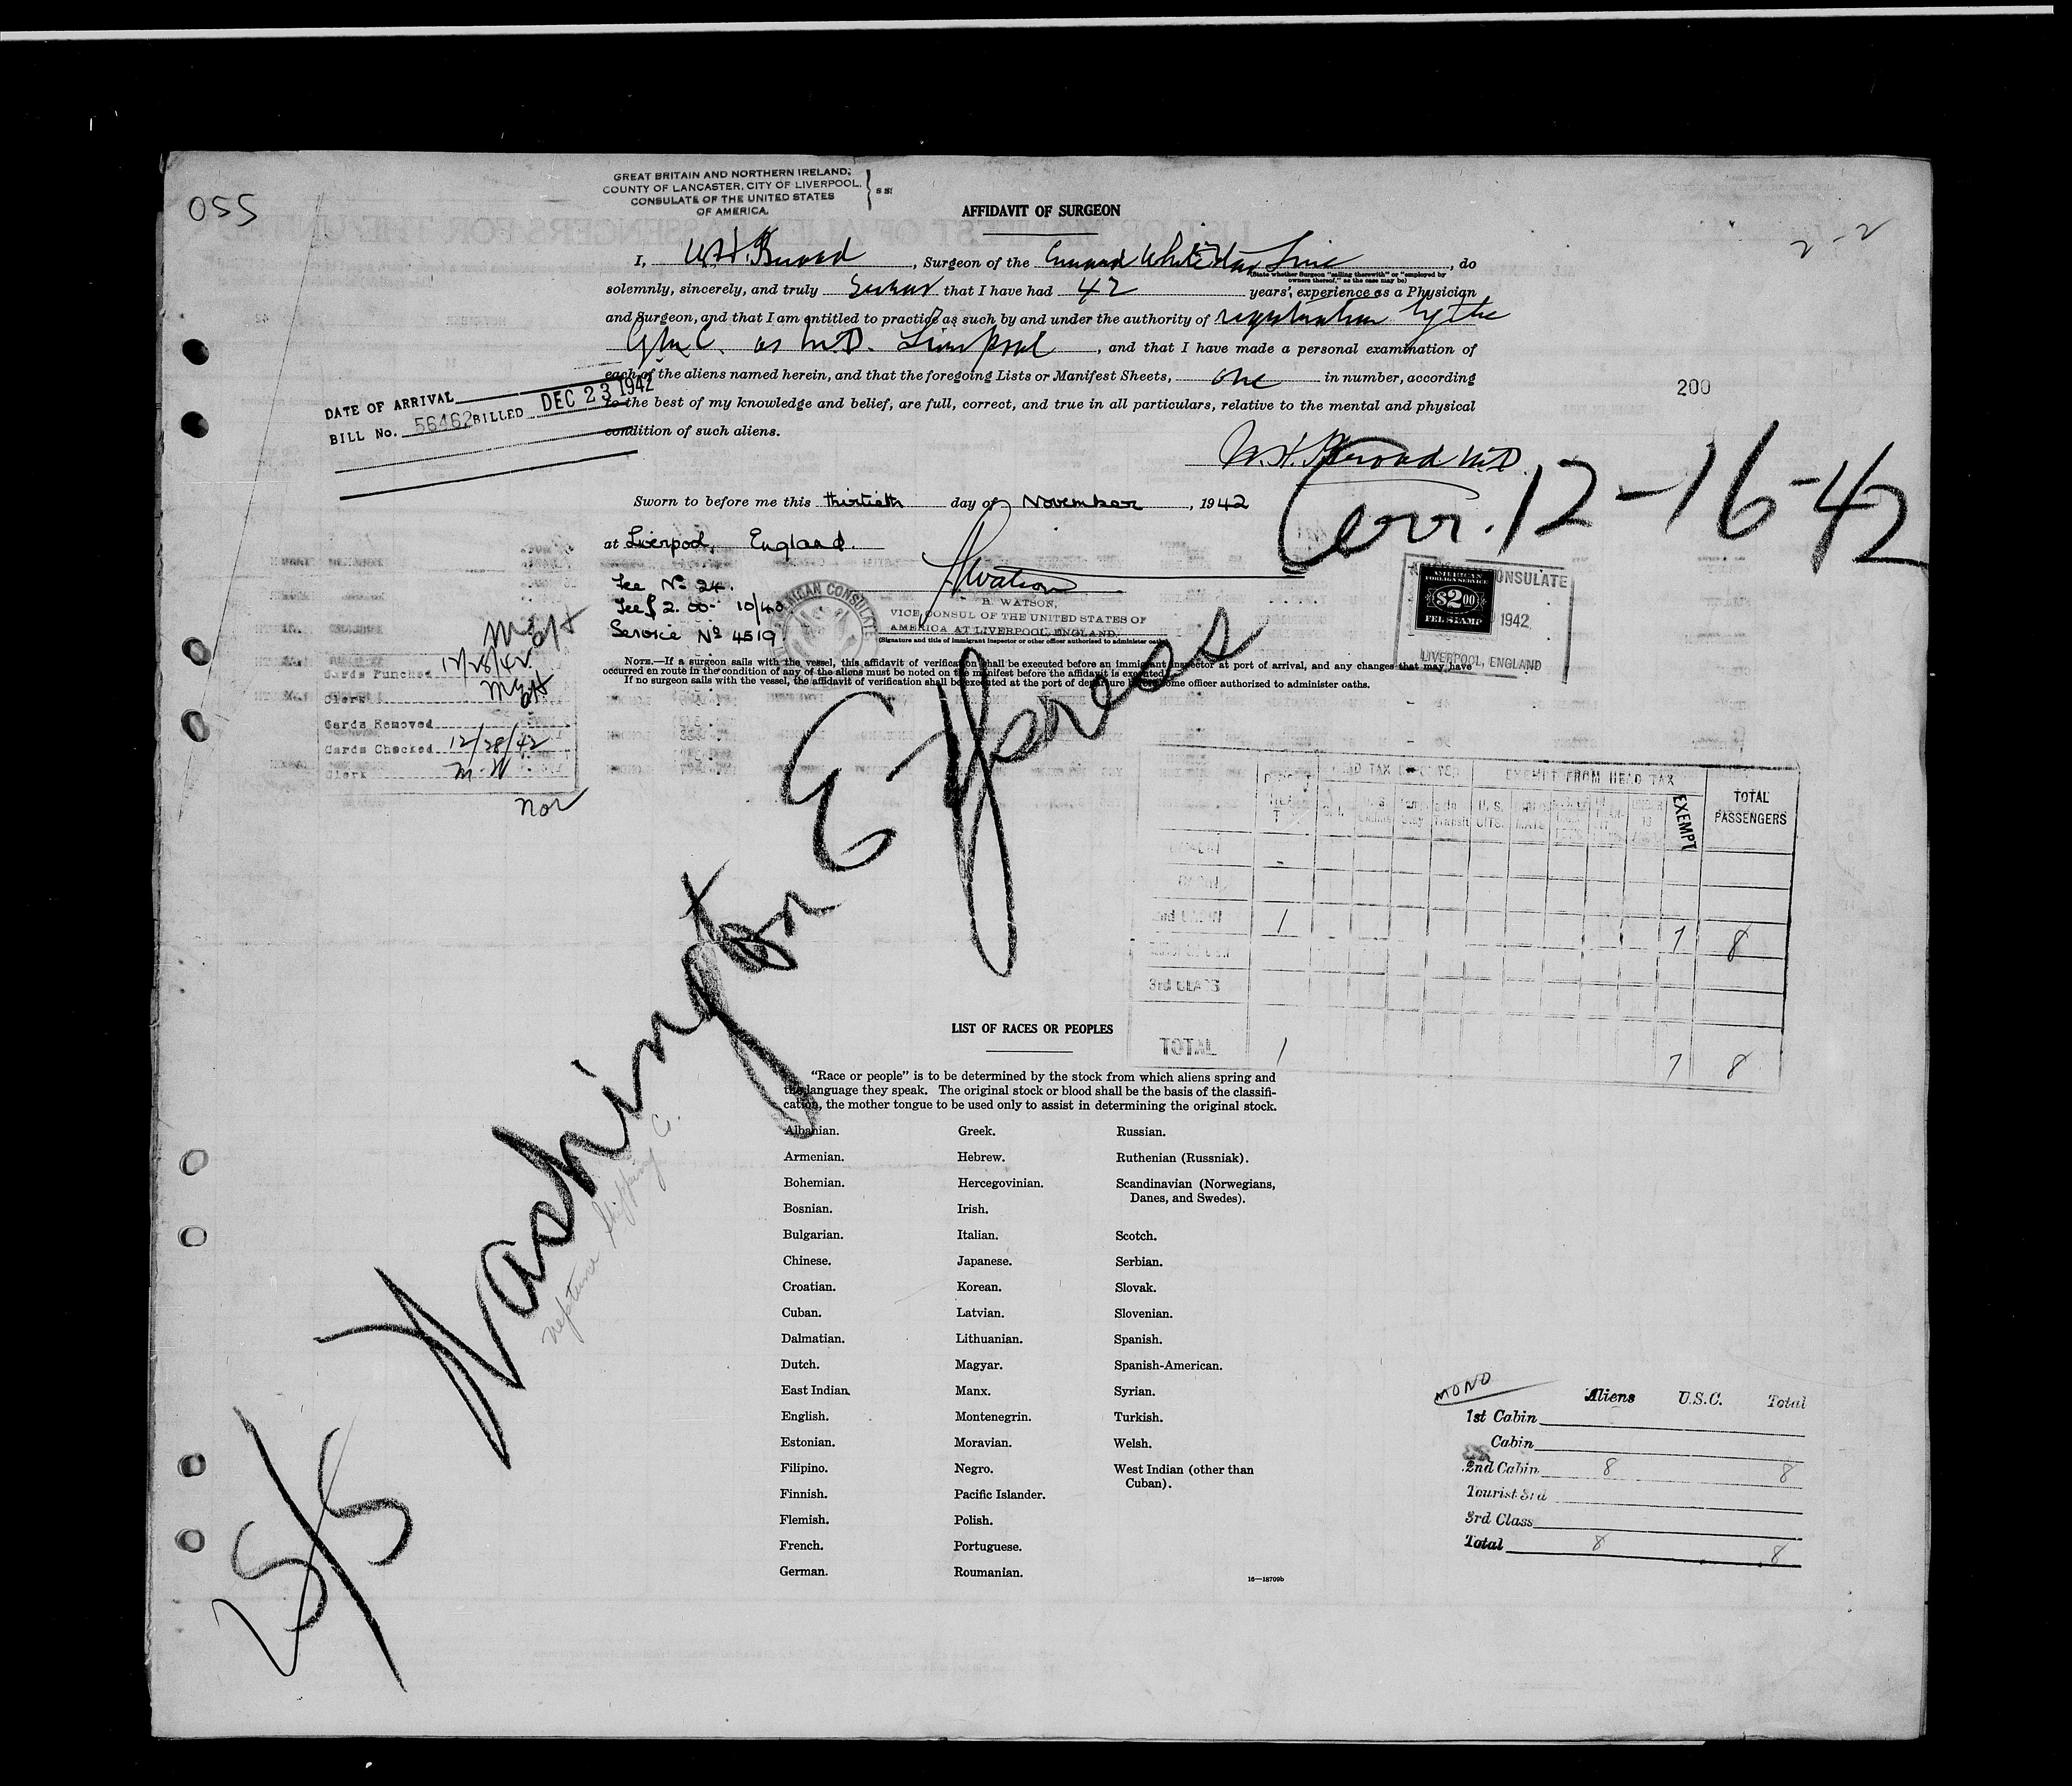 055
GREAT BRITAIN AND NORTHERN IRELAND;
COUNTY OF LANCASTER, CITY OF LIVERPOOL,
CONSULATE OF THE UNITED STATES
OF AMERICA.
} ss:
2-2
AFFIDAVIT OF SURGEON
I, , Surgeon of the Cunard White Star Line, do
(State whether Surgeon "sailing therewith" or "employed by
owners thereof," as the case may be)
solemnly, sincerely, and truly Swear that I have had 42 years' experience as a Physician
and Surgeon, and that I am entitled to practice as such by and under the authority of registration by the
G.M.C. as M.D. Liverpool, and that I have made a personal examination of
each of the aliens named herein, and that the foregoing Lists or Manifest Sheets, one in number, according
to the best of my knowledge and belief, are full, correct, and true in all particulars, relative to the mental and physical
condition of such aliens.
200
DATE OF ARRIVAL
BILL No. 56462 BILLED DEC 23 1942
M.D.
Sworn to before me this thirtieth day of November, 1942
at Liverpool, England.
arr. 12-16-42
Fee No 24.
Fee $ 2.00 - 10/
Service No 4519
Watson
AMERICAN CONSULATE
B. WATSON,
VICE CONSUL OF THE UNITED STATES OF
AMERICA AT LIVERPOOL, ENGLAND.
(Signature and title of immigrant inspector or other officer authorized to administer oaths)
AMERICAN CONSULATE
AMERICAN
FOREIGN SERVICE
$2.00
FEE STAMP
1942
LIVERPOOL, ENGLAND
NOTE.—If a surgeon sails with the vessel, this affidavit of verification shall be executed before an immigrant inspector at port of arrival, and any changes that may have
occurred en route in the condition of any of the aliens must be noted on the manifest before the affidavit is executed.
If no surgeon sails with the vessel, the affidavit of verification shall be executed at the port of departure before some officer authorized to administer oaths.
Cards Punched 12/28/42
Clerk
Cards Removed
Cards Checked 12/28/42
Clerk M.W
nor
S/S Washington Express
Neptune Shipping Co.
HEAD TAX EXEMPT FROM HEAD TAX
EXEMPT
TOTAL
PASSENGERS
2nd CABIN 1 7 8
3rd CLASS
TOTAL 1 7 8
LIST OF RACES OR PEOPLES
"Race or people" is to be determined by the stock from which aliens spring and
the language they speak. The original stock or blood shall be the basis of the classifi-
cation, the mother tongue to be used only to assist in determining the original stock.
Albanian.
Armenian.
Bohemian.
Bosnian.
Bulgarian.
Chinese.
Croatian.
Cuban.
Dalmatian.
Dutch.
East Indian.
English.
Estonian.
Filipino.
Finnish.
Flemish.
French.
German.
Greek.
Hebrew.
Hercegovinian.
Irish.
Italian.
Japanese.
Korean.
Latvian.
Lithuanian.
Magyar.
Manx.
Montenegrin.
Moravian.
Negro.
Pacific Islander.
Polish.
Portuguese.
Roumanian.
Russian.
Ruthenian (Russniak).
Scandinavian (Norwegians,
Danes, and Swedes).
Scotch.
Serbian.
Slovak.
Slovenian.
Spanish.
Spanish-American.
Syrian.
Turkish.
Welsh.
West Indian (other than
Cuban).
16—18709b
MONO
Aliens U.S.C. Total
1st Cabin
Cabin
2nd Cabin 8 8
Tourist 3rd
3rd Class
Total 8 8